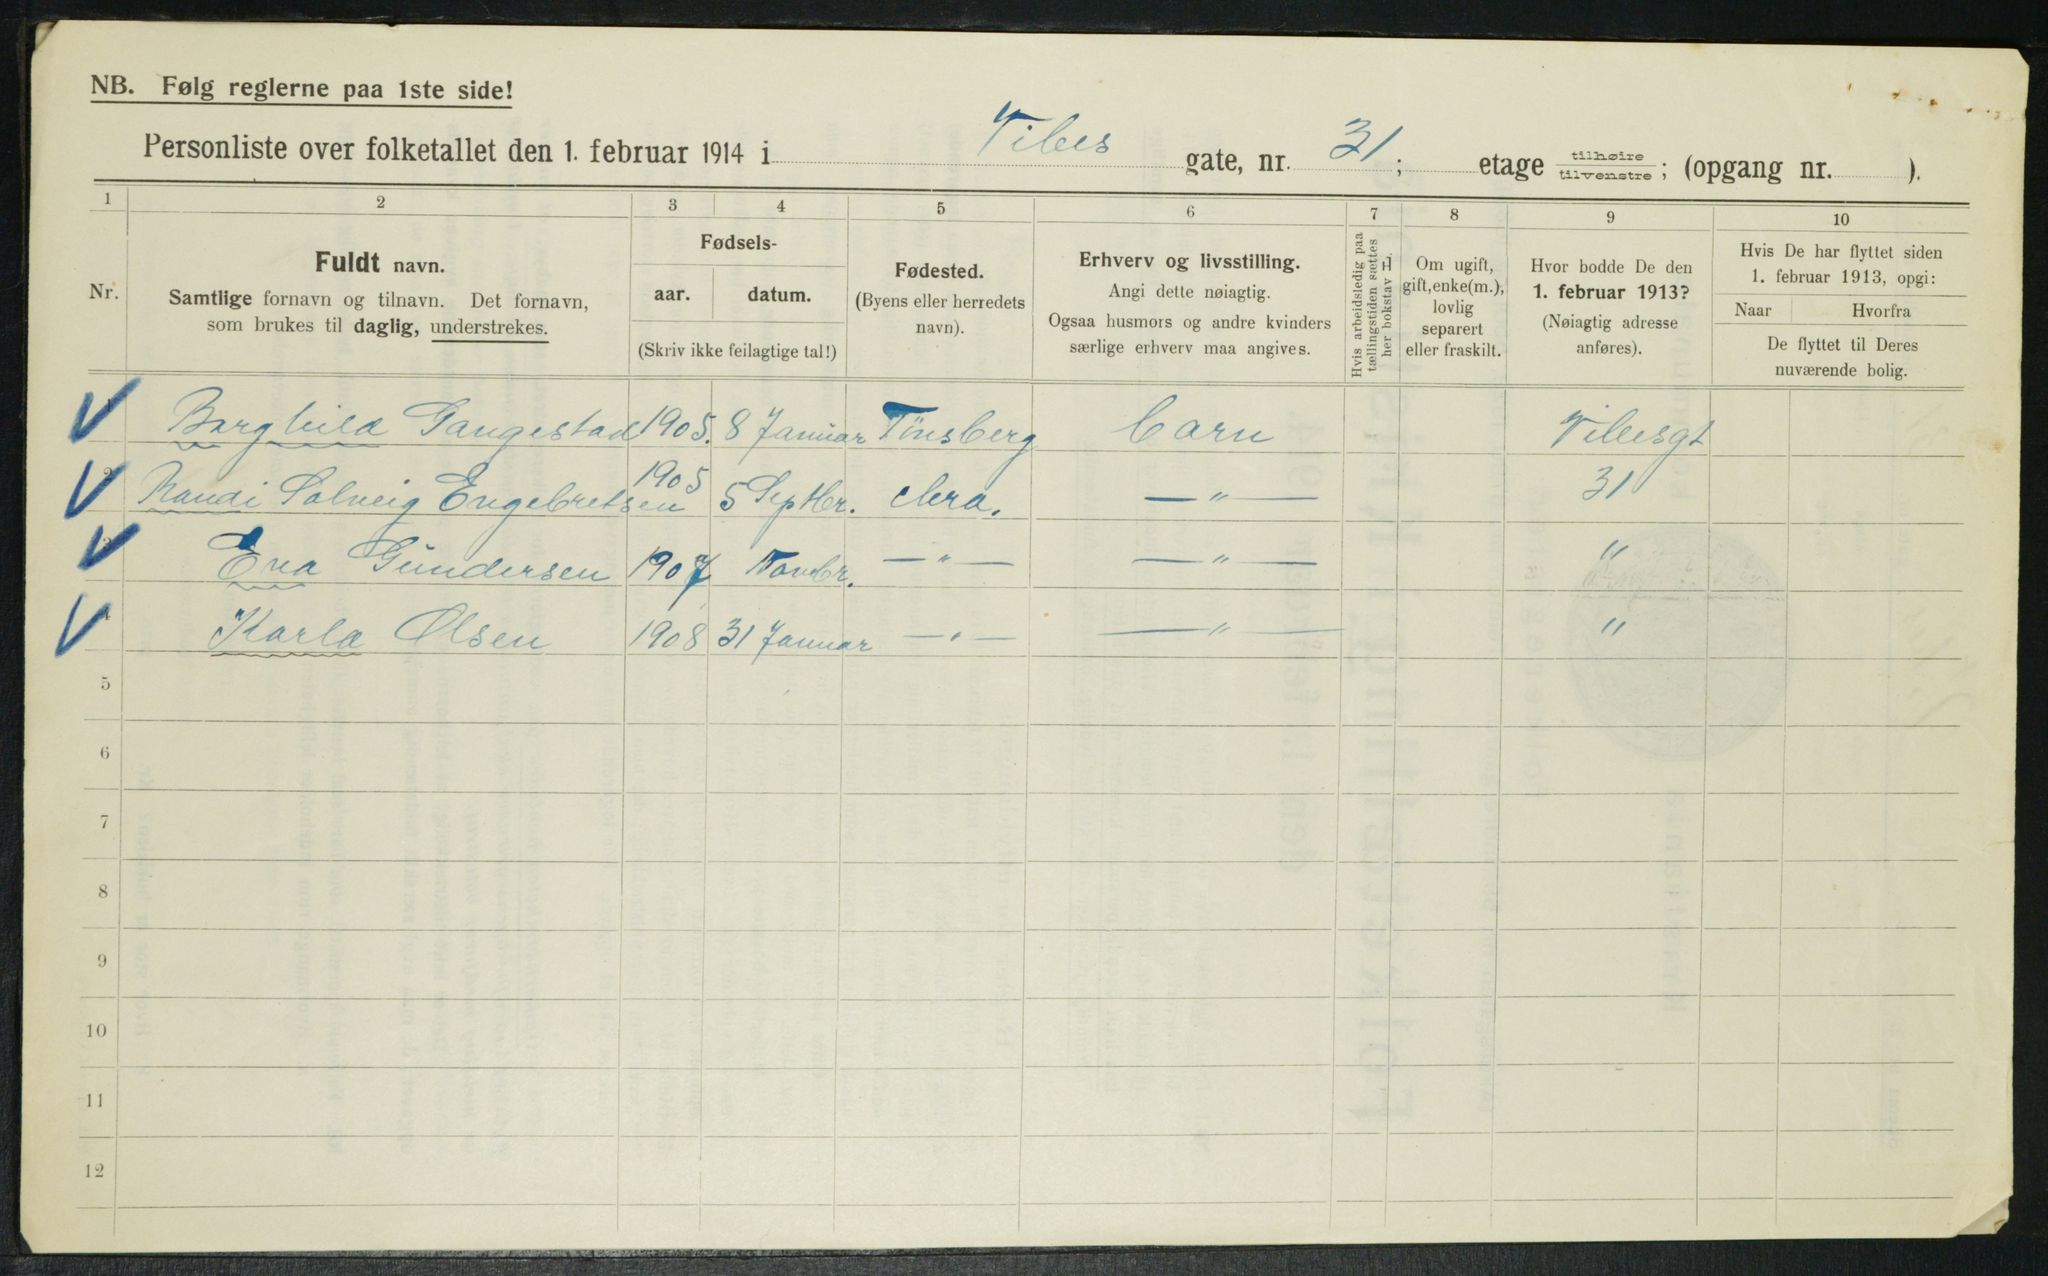 NB. Følg reglerne paa 1ste side!
Personliste over folketallet den 1. februar 1914 i Vibes gate, nr. 31; etage tilhøire tilvenstre; (opgang nr. ).
1 2 3 4 5 6 7 8 9 10
Nr.
Fuldt navn.
Samtlige fornavn og tilnavn. Det fornavn,
som brukes til daglig, understrekes.
Fødsels-
aar. datum.
(Skriv ikke feilagtige tal!)
Fødested.
(Byens eller herredets
navn).
Erhverv og livsstilling.
Angi dette nøiagtig.
Ogsaa husmors og andre kvinders
særlige erhverv maa angives.
Hvis arbeidsledig paa
tællingstiden sættes
her bokstav L
Om ugift,
gift, enke(m.),
lovlig
separert
eller fraskilt.
Hvor bodde De den
1. februar 1913?
(Nøiagtig adresse
anføres).
Hvis De har flyttet siden
1. februar 1913, opgi:
Naar Hvorfra
De flyttet til Deres
nuværende bolig.
1 Borghild Gangestad 1905. 8 Januar Tönsberg barn Vibesgt
2 Randi Solveig Engebretsen 1905 5 Septbr. Kra. — " — 31
3 Eva Gundersen 1907 Novbr. — " — — " — "
4 Karla Olsen 1908 31 Januar — " — — " — "
5
6
7
8
9
10
11
12